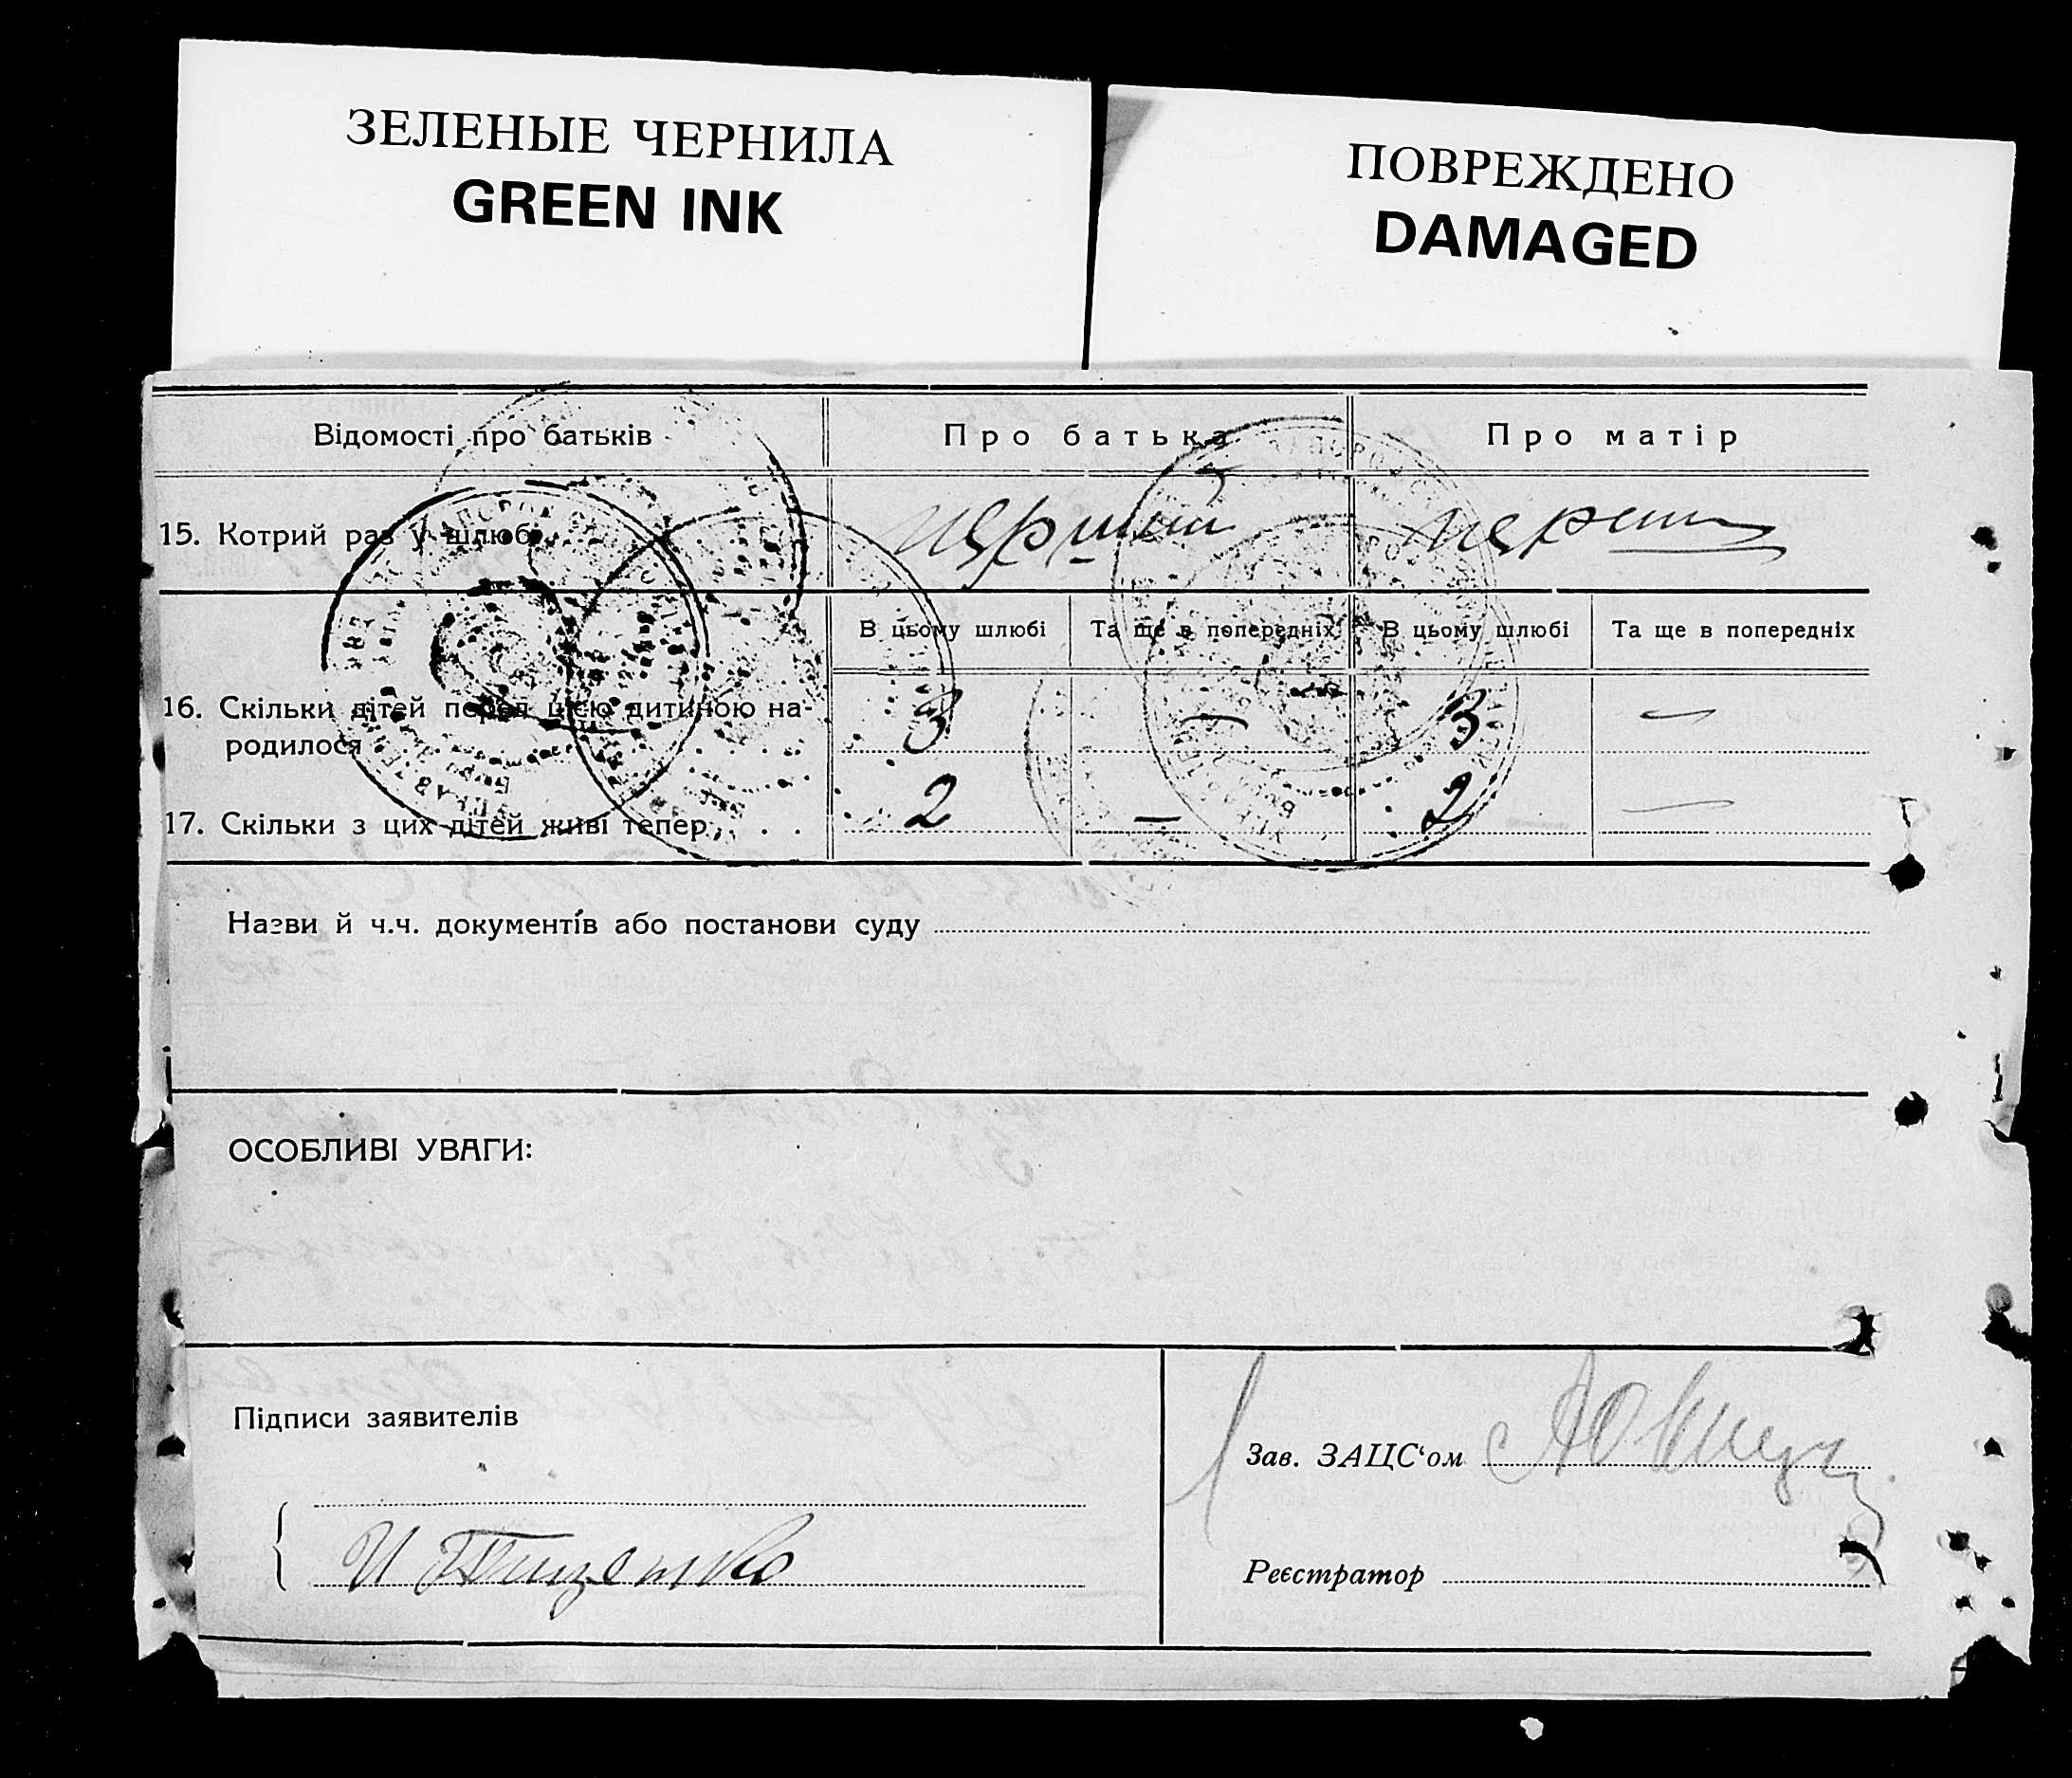 ЗЕЛЕНЫЕ ЧЕРНИЛА
GREEN INK
ПОВРЕЖДЕНО
DAMAGED
Відомості про батьків
Про батька
Про матір
15. Котрий раз у шлюбі
перший
В цьому шлюбі
Та ще в попередніх
В цьому шлюбі
Та ще в попередніх
16. Скільки дітей перед цією дитиною на-
родилося
3
—
3
—
17. Скільки з цих дітей живі тепер . . .
2
—
2
—
Назви й ч.ч. документів або постанови суду
ОСОБЛИВІ УВАГИ:
Підписи заявителів
Зав. ЗАЦС‘ом
Реєстратор